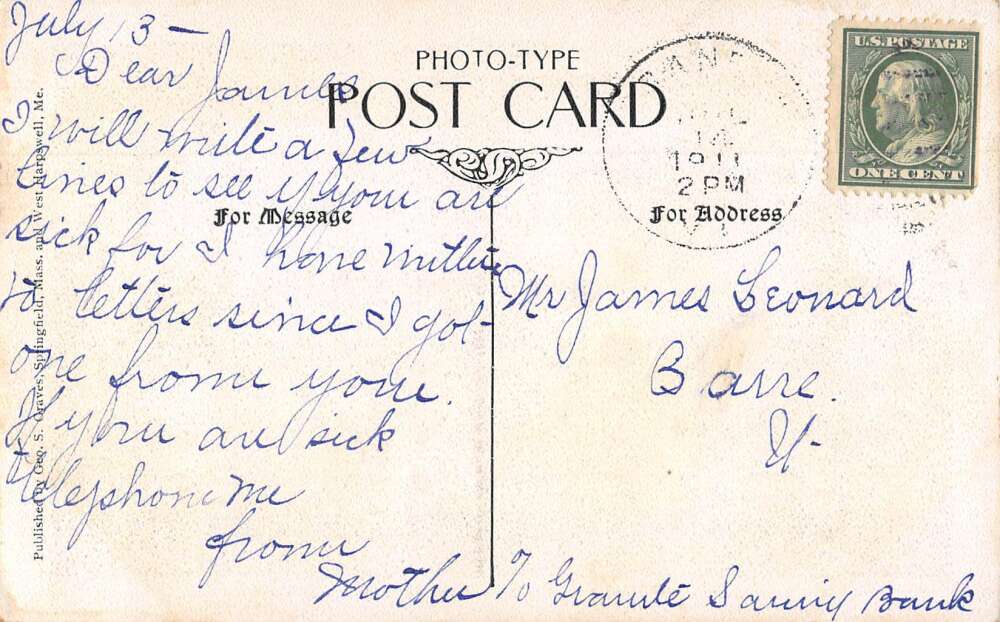 July 13 —
Dear James
I will write a few
lines to see if your are
sick for I have
letters since I got
one frome your.
If your are sick
Telephone me
frome
Mother
PHOTO-TYPE
POST CARD
For Message
For Address
14
1911
2 PM
VT
U.S. POSTAGE
ONE CENT
Mr James Leonard
Barre.
Vt
To Granite Saving Bank
Published by Geo. S. Graves, Springfield, Mass. and West Harpswell, Me.